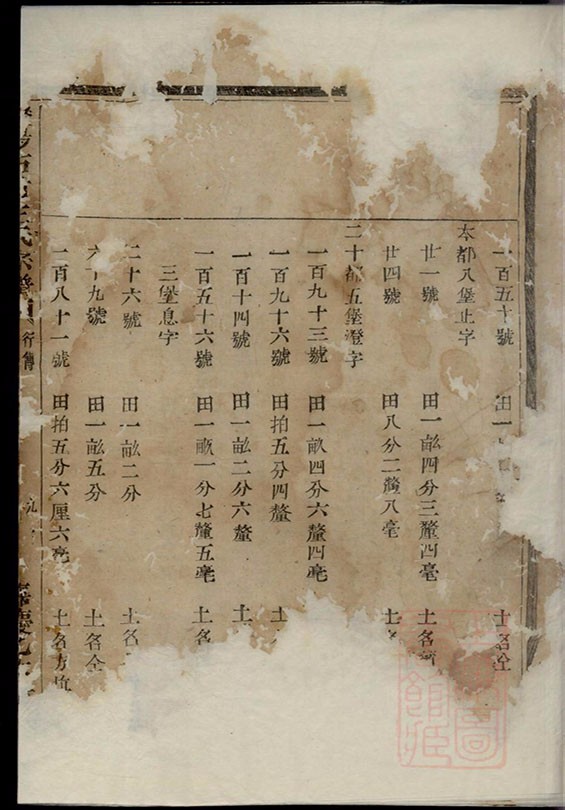 一百五十號 田一 土名仝
本都八堡止字
廿一號 田一畝四分三釐四毫 土名
廿四號 田八分二釐八毫 土名
二十都五堡澄字
一百九十三號 田一畝四分六釐四毫
一百九十六號 田拍五分四釐 土
一百十四號 田一畝二分六釐 土
一百五十六號 田一畝一分七釐五毫 土名
三堡息字
二十六號 田一畝二分 土名
六十九號 田一畝五分 土名仝
一百八十一號 田拍五分六厘六毫 土名方坑
氏宗譜 行傳